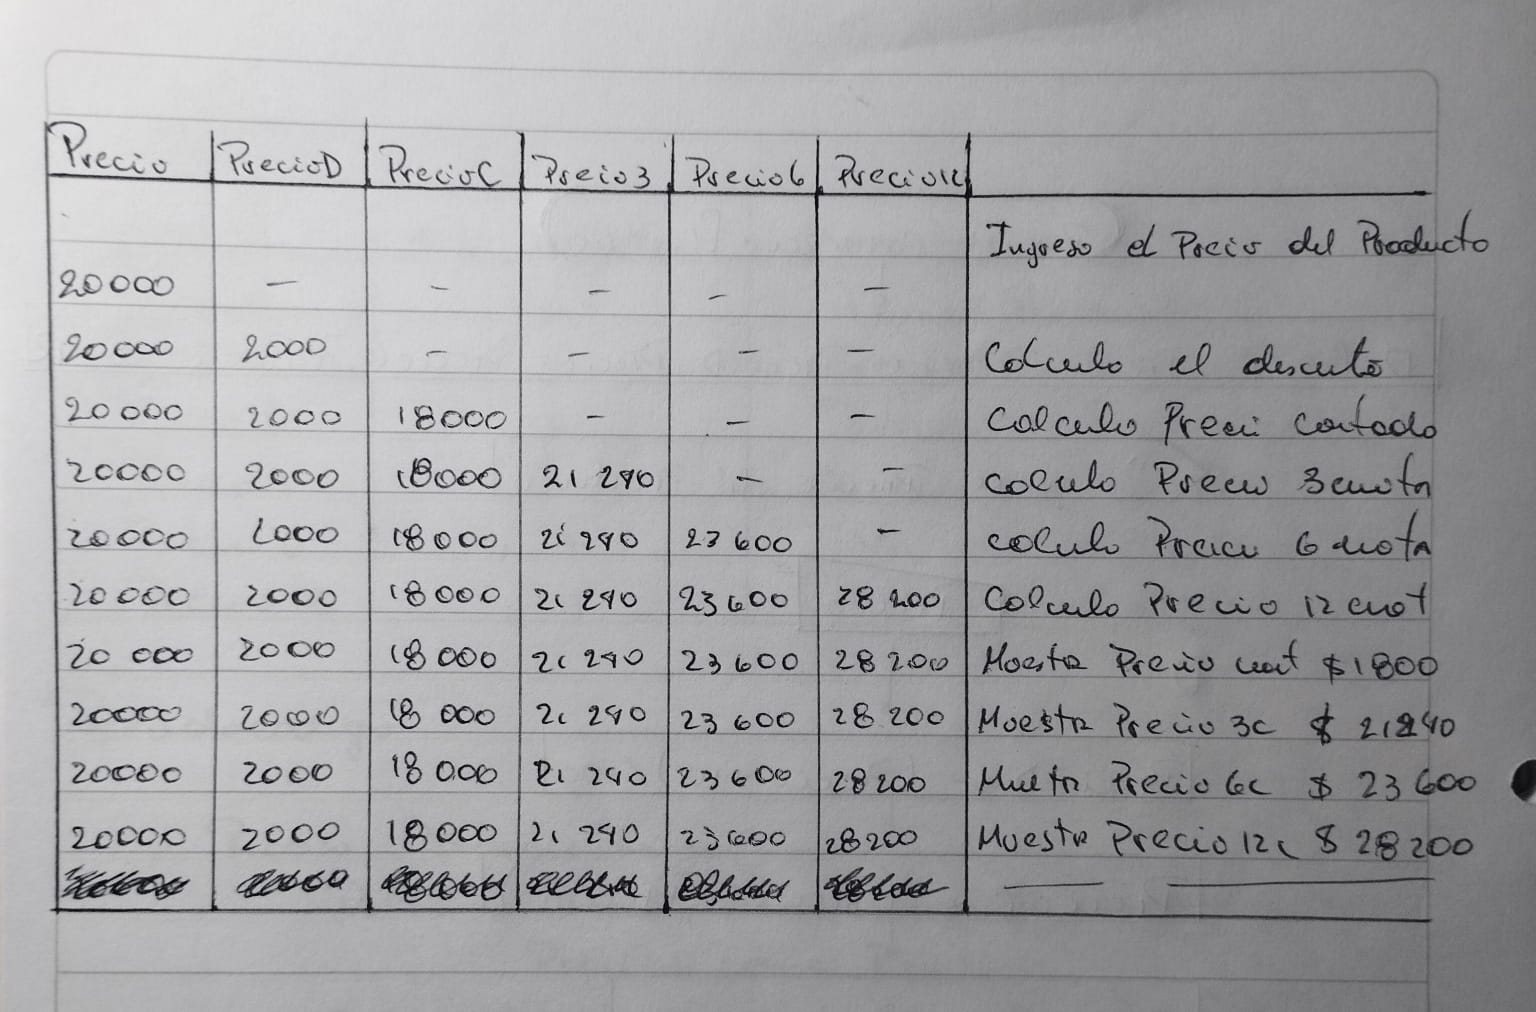 Precio PrecioD PrecioC Precio3 Precio6 Precio12
Ingreso el Precio del Producto
20000 — — — — —
20000 2000 — — — — Calculo el descuto
20000 2000 18000 — — — Calculo Preci contado
20000 2000 18000 21 240 — — Calculo Precio 3 cuota
20000 2000 18000 21 240 23 600 — Calculo Precio 6 cuota
20000 2000 18000 21 240 23 600 28 200 Calculo Precio 12 cuot
20 000 2000 18 000 21 240 23 600 28 200 Muestra Precio cont $1800
20000 2000 18 000 21 240 23 600 28 200 Muestra Precio 3c $ 21240
20000 2000 18 000 21 240 23 600 28 200 Muestra Precio 6c $ 23 600
20000 2000 18 000 21 240 23 600 28 200 Muestra Precio 12c $ 28 200